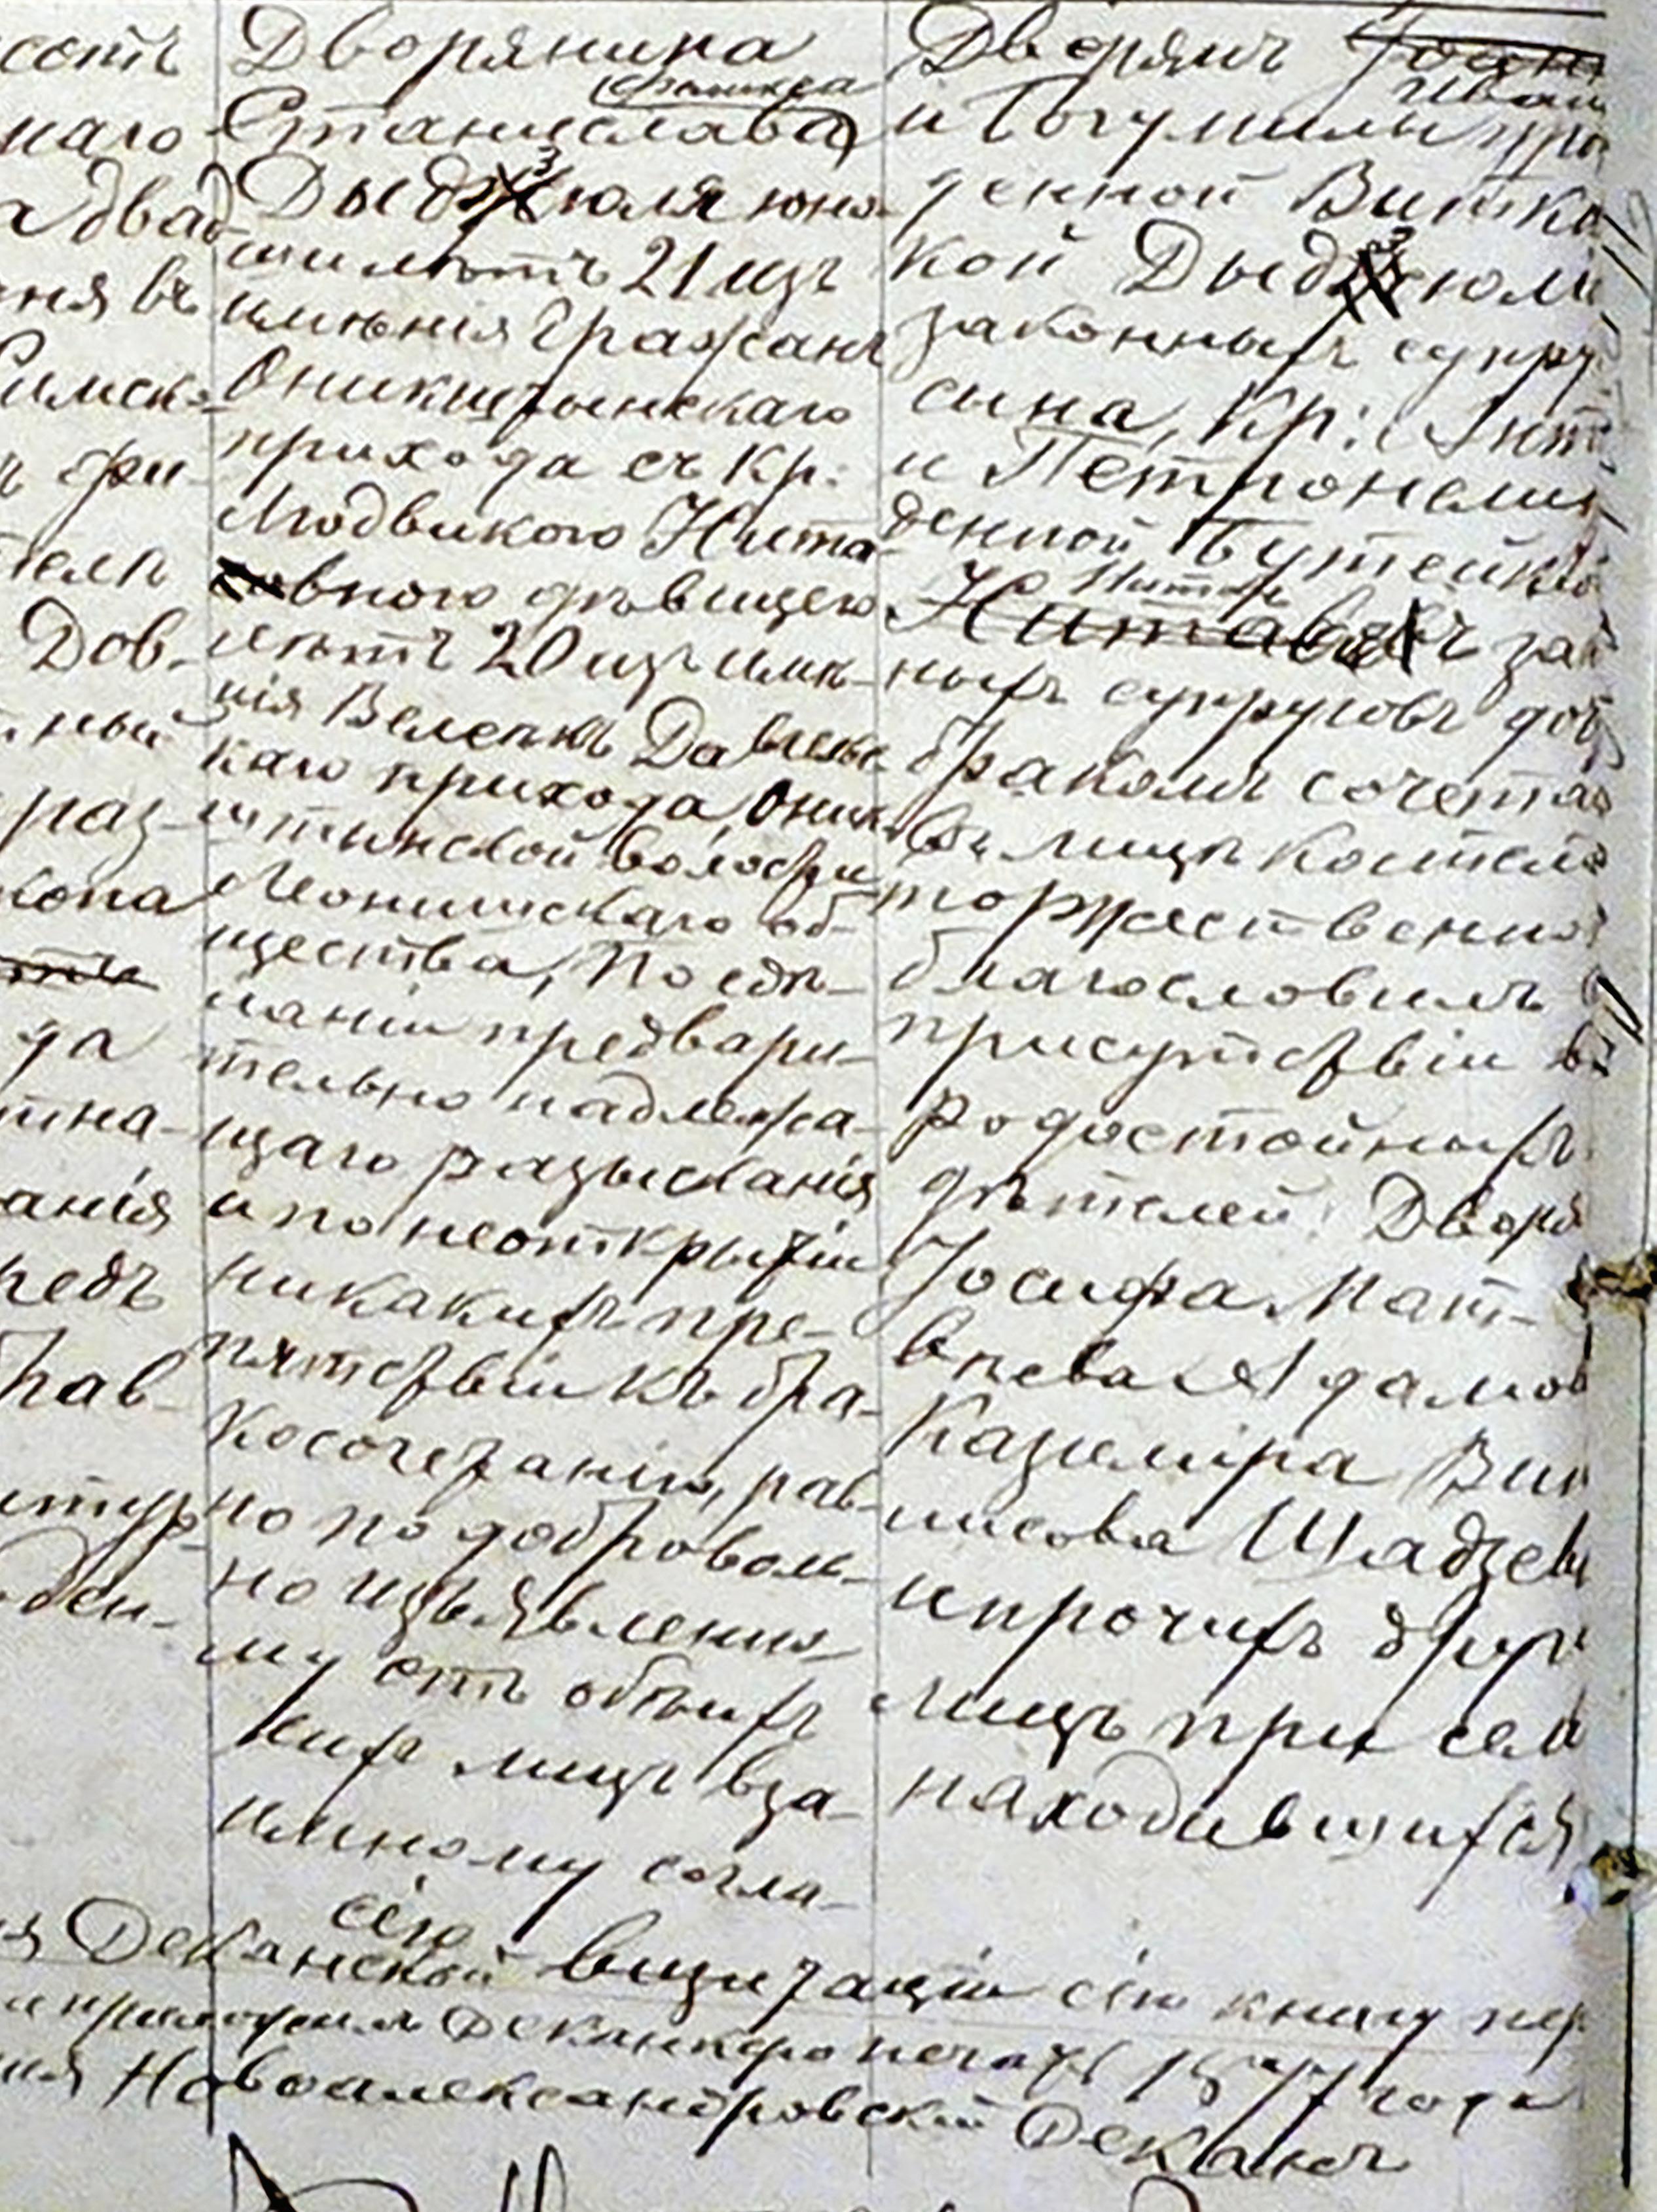 сотъ
наго
два
ня въ
Римск-
фи-
теля
Дов-
ный
раз-
кона
да
тна-
анія
редъ
Прав-
ден-
Дворянина
Станислава
Дыбзюля юно-
ши лѣтъ 21 изъ
имѣнія Гражанъ
Оникштынскаго
прихода съ Кр:
Людвикою Нита-
вною дѣвицею
лѣтъ 20 изъ имѣ-
нія
каго прихода, Оник-
штынской волости
Леонишскаго об-
щества, По сдѣ-
ланіи предвари-
тельно надлежа-
щаго разысканія
и по неоткрытіи
никакихъ пре-
пятствій къ бра-
косочетанію, рав-
но по доброволь-
но изъявленно-
му отъ обѣихъ
сихъ лицъ вза-
имному согла-
сію
Дворянъ Іоан
Иван
и Богумилы уро
денной Витко
кой Дыбзюли
законныхъ супру
сына, Кр: Ант
и Петронели
денной Бутейко
Нитав
Нитавичъ зак
ныхъ супруговъ доч
бракомъ сочетал
въ лицѣ костела
торжественно
благословилъ
присутствіи въ
родостойныхъ
дѣтелей: Дворя
Іосифа Мат-
вѣева Адамов
Казиміра Вин
Шадзев
и прочихъ друг
лицъ при сем
находившихся
Деканской визитаціи сію книгу пер
приложеніемъ Деканской печати 1877 года
Новоалександровскій Деканъ